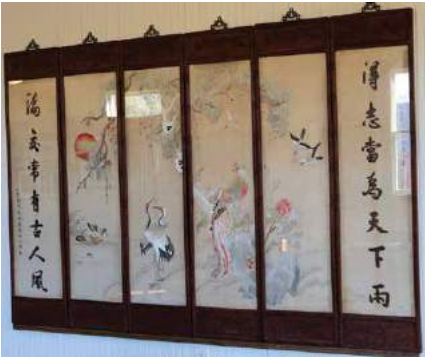 得志當為天下雨
論交常有古人風